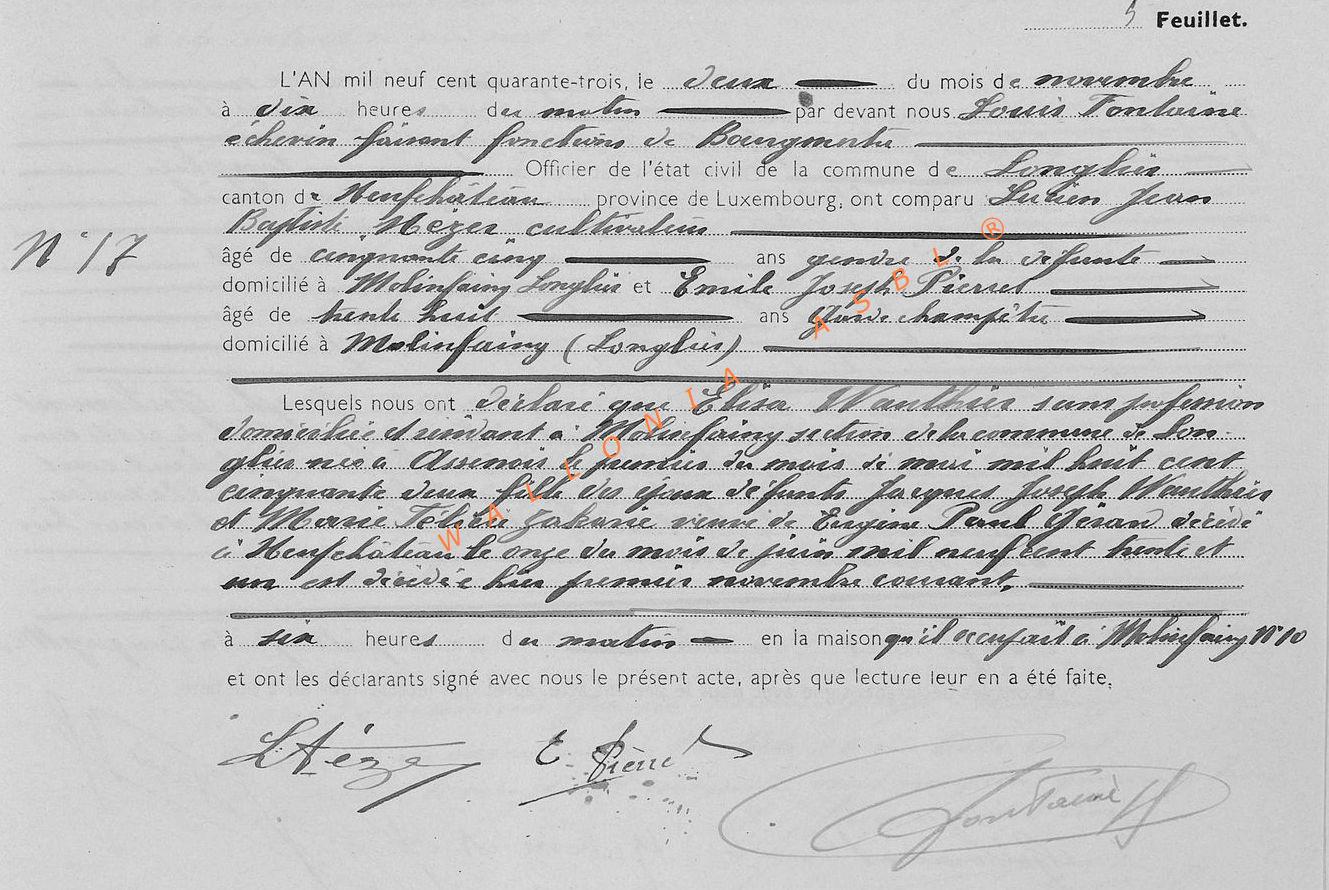 5 Feuillet.
L'AN mil neuf cent quarante-trois, le deux du mois de novembre
à dix heures du matin par devant nous Louis Fontaine
echevin faisant fonctions de Bourgmestre
Officier de l'état civil de la commune de Longlier
canton de Neufchâteau province de Luxembourg, ont comparu Lucien Jean
Baptiste Hézer cultivateur
N° 17
âgé de cinquante cinq ans gendre de la défunte
domicilié à Molinfaing Longlier et Emile Joseph Pierret
âgé de trente huit ans garde champêtre
domicilié à Molinfaing (Longlier)
Lesquels nous ont déclaré que Elisa Wauthier sans profession
domiciliée et résidant à Molinfaing section de la commune de Lon-
glier née à Assenois le premier du mois de mai mil huit cent
cinquante deux fille des époux défunts Jacques Joseph Wauthier
et Marie Zakarie veuve de Eugène Paul Gérard décédé
à Neufchâteau le onze du mois de juin mil neuf cent trente et
un est décédée hier premier novembre courant,
à six heures du matin en la maison qu'il occupait à Molinfaing N° 10
et ont les déclarants signé avec nous le présent acte, après que lecture leur en a été faite.
L Hézer E Pierret
Fontaine
WALLONIA ASBL ®